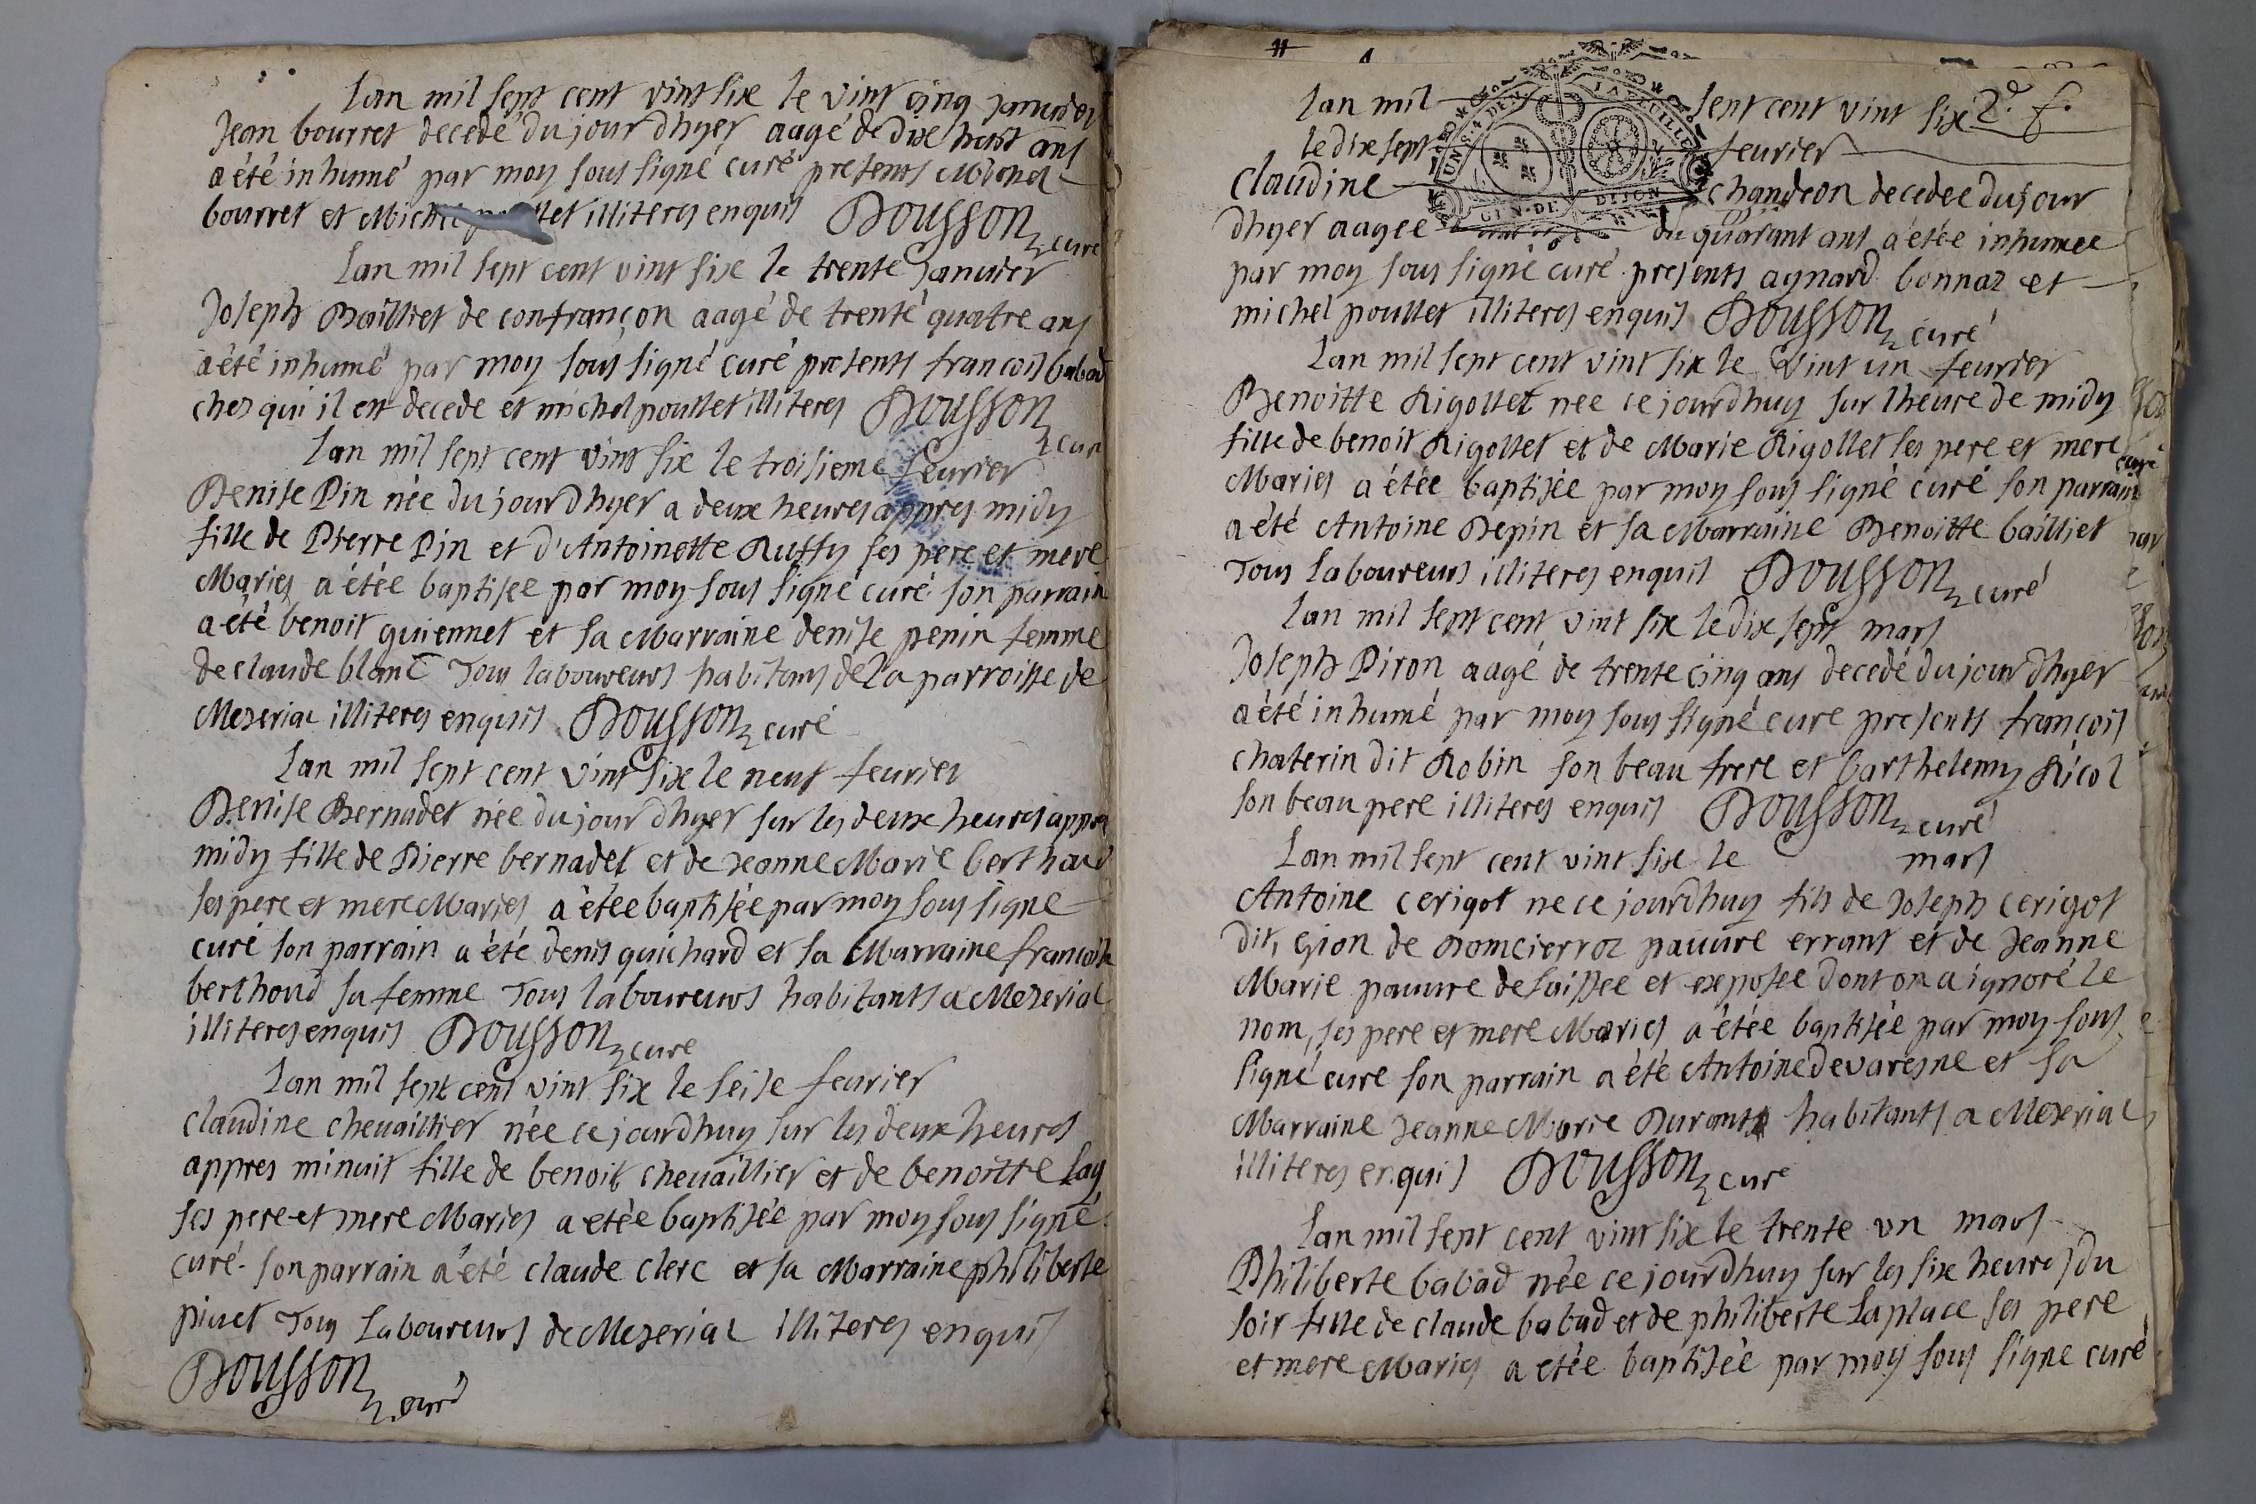 Lan mil sept cent vint six le vint cinq januier
Jean bourret decedé du jour dhyer aagé de dix huit ans
a été inhumé par moy sous signé curé presents
bourret et Michel illiteres enquis Dousson curé
Lan mil sept cent vint six le trente januier
Joseph Bailliet de confrançon aagé de trente quatre ans
a été inhumé par moy sous signé curé presents francois babad
chez qui il est decede et michel poullet illiteres Dousson curé
Lan mil sept cent vint six le troisieme feurier
Denise Pin née du jour dhyer a deux heures appres midy
fille de Pierre Pin et d'Antoinette Ruffy ses pere et mere
Maries a étée baptisée par moy sous signé curé son parrain
a été benoit guiennet et sa Marraine denise penin femme
de claude blanc Tous laboureurs habitans de la parroisse de
Mezeriat illiteres enquis Dousson curé
Lan mil sept cent vint six le neuf feurier
Denise Bernadet née du jour dhyer sur les deux heures appres
midy fille de Pierre bernadet et de Jeanne Marie berthoud
ses pere et mere Maries a étée baptisée par moy sous signe
curé son parrain a été denis guichard et sa Marraine francoise
berthoud sa femme Tous laboureurs habitants a Mezeriat
illiteres enquis Dousson curé
Lan mil sept cent vint six le seise feurier
claudine cheuaillier née ce jourdhuy sur les deux heures
appres minuit fille de benoit cheuaillier et de benoitte Lay
ses pere et mere Maries a etée baptisée par moy sous signé
curé son parrain a été claude clerc et sa Marraine philiberte
piuet Tous Laboureurs de Mezeriat illiteres enquis
Dousson curé
Lan mil sept cent vint six 2e. f.
le dix sept feurier
claudine chandeon decedee du jour
dhyer aagee de quarant ans a étée inhumee
par moy sous signé curé presents aynard bonnaz et
michel poullet illiteres enquis Dousson curé
Lan mil sept cent vint six le vint un feurier
Benoitte Rigollet née ce jourdhuy sur lheure de midy
fille de benoit Rigollet et de Marie Rigollet ses pere et mere
Maries a étée baptisée par moy sous signé curé son parrain
a été Antoine Depin et sa Marraine Benoitte bailliet
Tous Laboureurs illiteres enquis Dousson curé
Lan mil sept cent vint six le dix sept mars
Joseph Piron aagé de trente cinq ans decedé du jour dhyer
a été inhumé par moy sous signé curé presents francois
chaterin dit Robin son beau frere et barthelemy Ricol
son beau pere illiteres enquis Dousson curé
Lan mil sept cent vint six le mars
Antoine cerigot ne ce jourdhuy fils de Joseph cerigot
dit, gion de Domcierroz pauure errant et de Jeanne
Marie pauure delaissee et exposee dont on a ignoré le
nom, ses pere et mere Maries a étée baptisée par moy sous
signé cure son parrain a été Antoine devaresne et sa
Marraine Jeanne Marie Durant habitants a Mezeriat
illiteres enquis Dousson curé
Lan mil sept cent vint six le trente un mars
Philiberte babad née ce jourdhuy sur les six heures du
soir fille de claude babad et de philiberte Laplace ses pere
et mere Maries a etée baptisée par moy sous signe curé